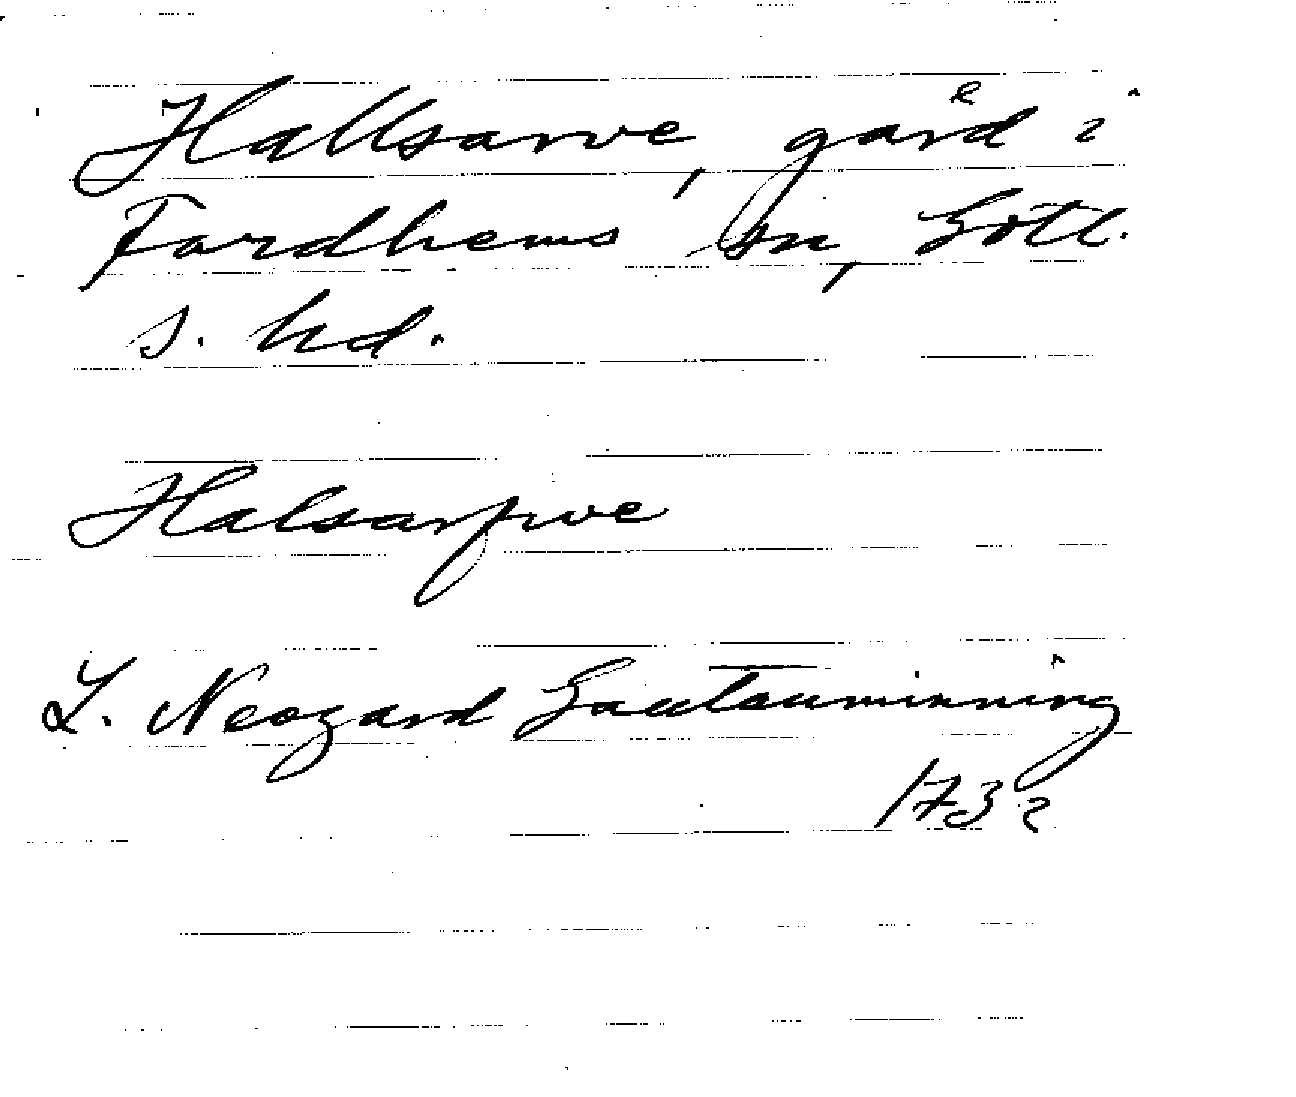 Hallsarve, gård i
Fardhems sn, Gotl.
s. hd.
Halsarfwe
L. Neogard Gautauminning
1732